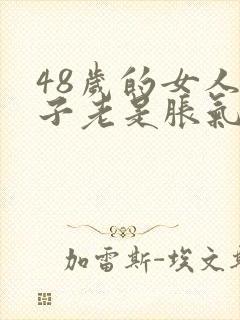 48歲的女人
子老是脹氣
加雷斯-埃文斯